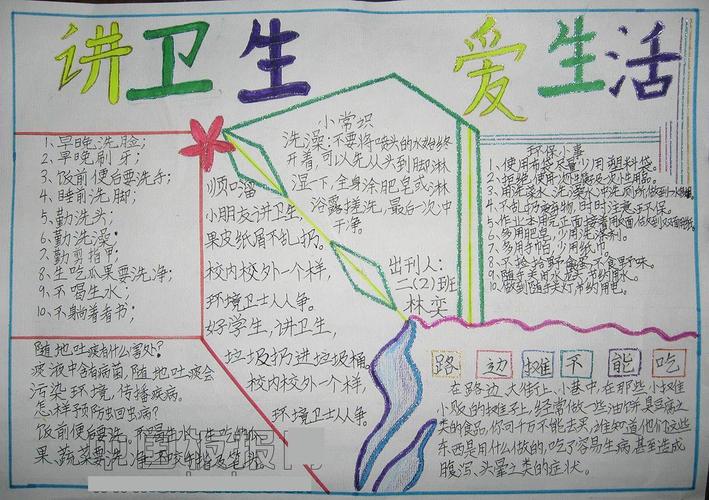 讲卫生 爱生活
1、早晚洗脸；
2、早晚刷牙；
3、饭前便后要洗手；
4、睡前洗脚；
5、勤洗头；
6、勤洗澡；
7、勤剪指甲；
8、生吃瓜果要洗净；
9、不喝生水；
10、不躺着看书；
随地吐痰有什么害处？
痰液中含有病菌，随地吐痰会
污染环境，传播疾病。
怎样预防蛔虫病？
饭前便后要洗
果、蔬菜要洗净
顺口溜
小朋友讲卫生，
果皮纸屑不乱扔。
校内校外一个样，
环境卫士人人争。
好学生，讲卫生，
垃圾扔进垃圾桶
校内校外一个样，
环境卫士人人争。
小常识
洗澡：不要将喷头的水始终
开着，可以先从头到脚淋
湿一下，全身涂肥皂或沐
浴露搓洗，最后一次冲
干净。
出刊人：
二(2)班
林奕
环保小事
1、使用布袋尽量少用塑料袋。
2、拒绝使用
3、用洗澡水、洗澡水冲洗厕所
4、不乱扔废弃物，时时注意环保。
5、作业本用完正面接着用反面
6、多用肥皂，少用洗涤剂。
7、多用手帕，少用纸巾。
8、不捡拾野
9、随手关水龙头节约用水。
10、做到随手关灯节约用电。
路边摊不能吃
在路边、大街上、小巷中，在那些小摊
小贩的摊子上，经常做一些油饼、臭豆腐之
类的食品，你可千万不能去买，谁知道他们这些
东西是用什么做的，吃了容易生病，甚至造成
腹泻、头晕之类的症状。